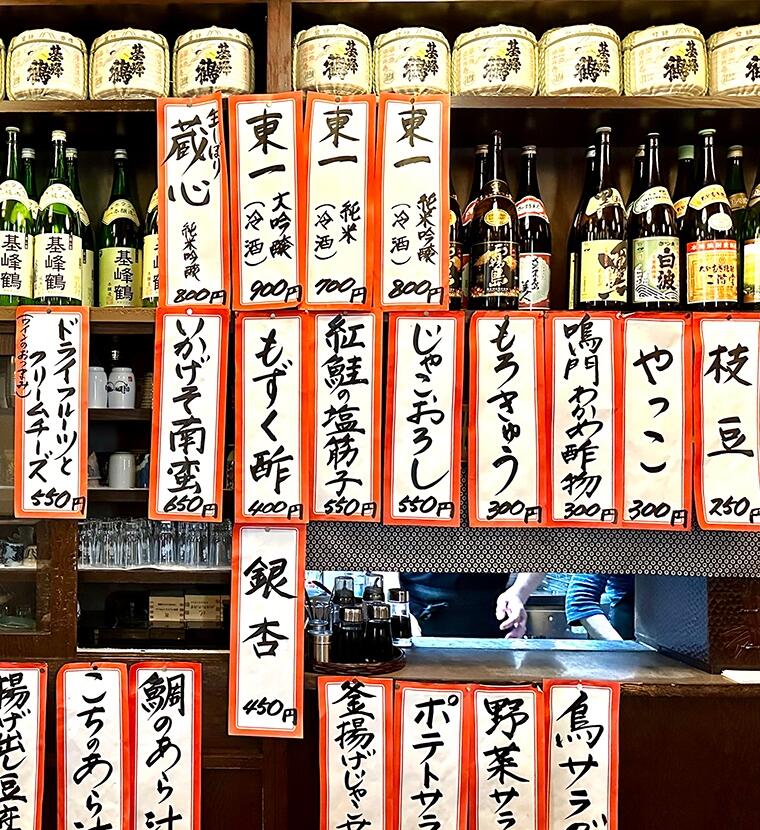 基峰鶴
基峰鶴
基峰鶴
基峰鶴
基峰鶴
基峰鶴
基峰鶴
基峰鶴
基峰鶴
生しぼり
蔵心
純米吟醸
800円
東一
大吟醸
(冷酒)
900円
東一
純米
(冷酒)
700円
東一
純米吟醸
(冷酒)
800円
基峰鶴
基峰鶴
基峰鶴
白波
二階堂
ドライフルーツと
クリームチーズ
(ワインのおつまみ)
550円
いかげそ南蛮
650円
もずく酢
400円
紅鮭の塩筋子
550円
じゃこおろし
550円
もろきゅう
300円
鳴門わかめ酢物
300円
やっこ
300円
枝豆
250円
銀杏
450円
揚げ出し豆腐
こちのあら汁
鯛のあら汁
釜揚げじゃこサ
ポテトサラ
野菜サラ
鳥サラダ